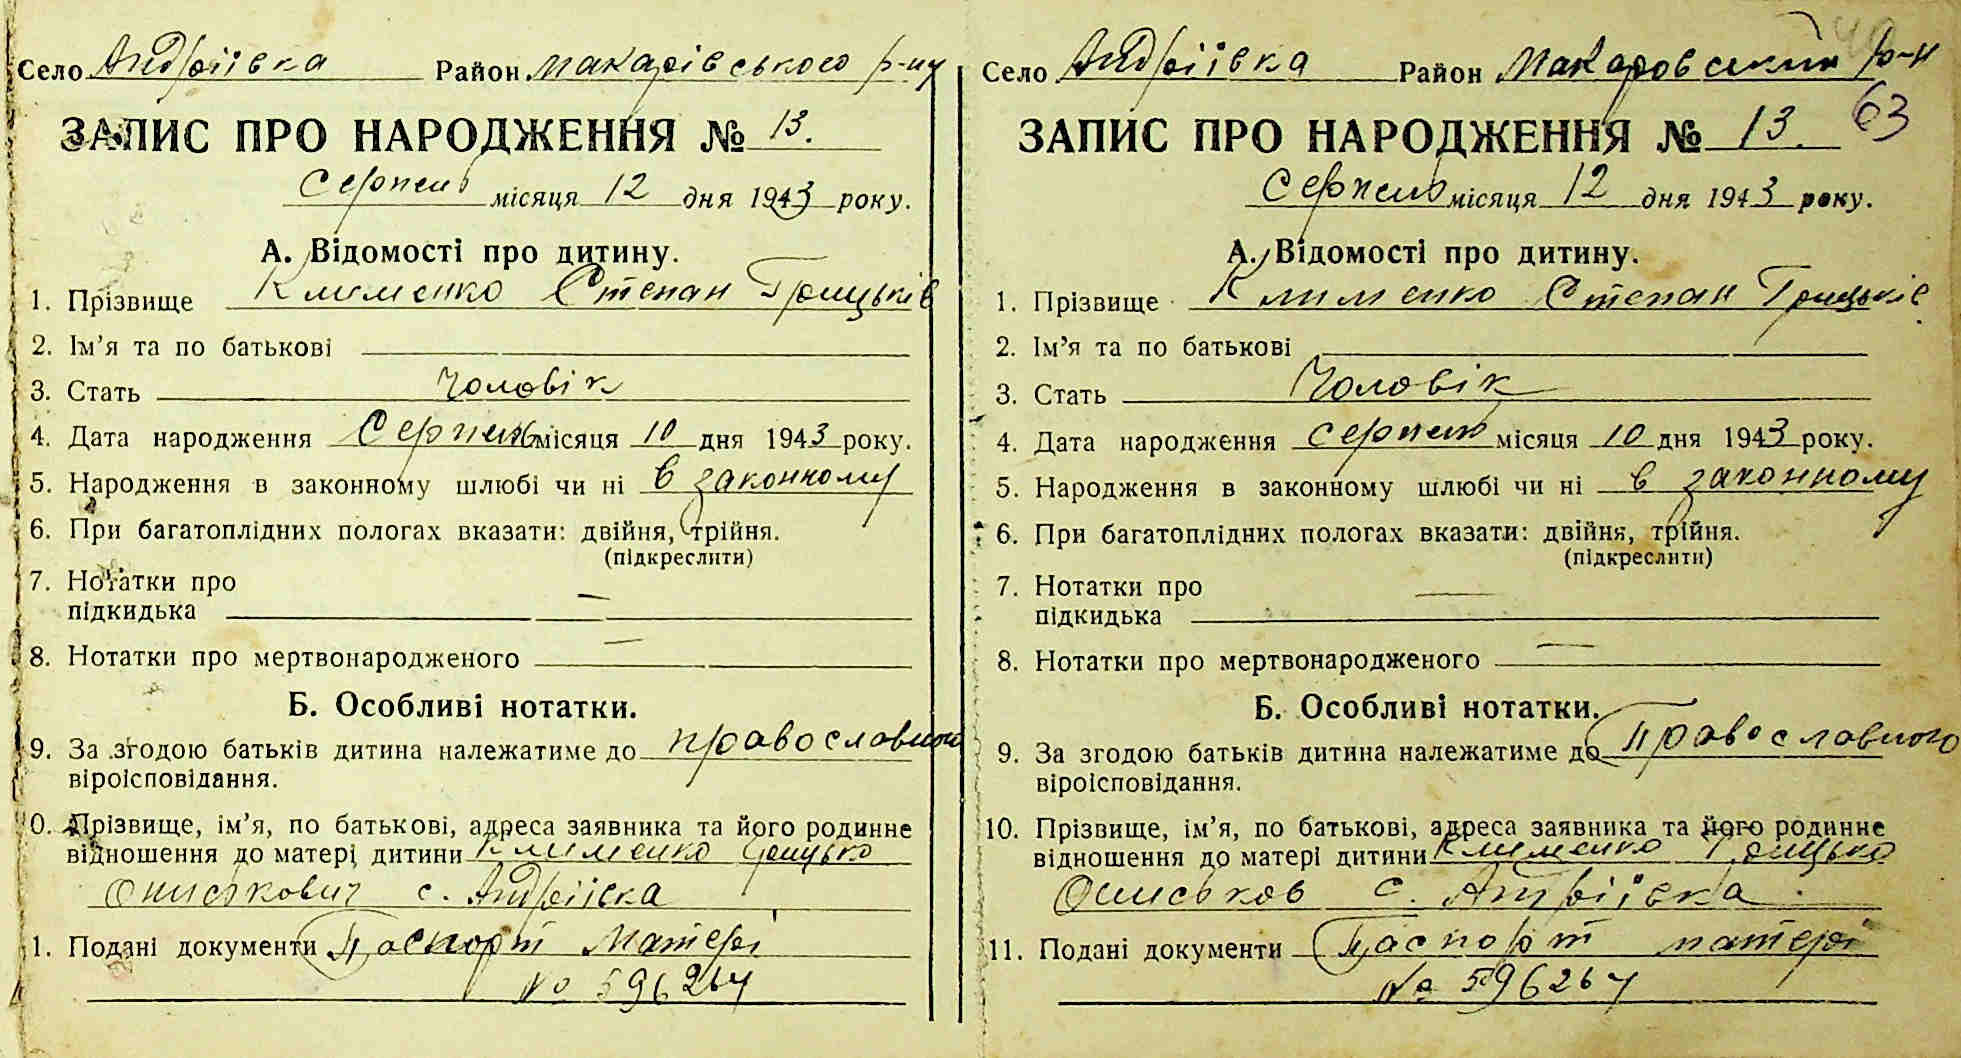 Село Андріївка Район Макарівського р-ну
ЗАПИС ПРО НАРОДЖЕННЯ № 13.
Серпень місяця 12 дня 1943 року.
А. Відомості про дитину.
1. Прізвище Клименко Степан Грицьків
2. Ім’я та по батькові
3. Стать Чоловік
4. Дата народження Серпень місяця 10 дня 1943 року.
5. Народження в законному шлюбі чи ні в законному
6. При багатоплідних пологах вказати: двійня, трійня.
(підкреслити)
7. Нотатки про —
підкидька
8. Нотатки про мертвонародженого —
Б. Особливі нотатки.
9. За згодою батьків дитина належатиме до православного
віроісповідання.
0. Прізвище, ім’я, по батькові, адреса заявника та його родинне
відношення до матері дитини Клименко Грицько
Ониськович с. Андріївка
1. Подані документи Паспорт Матері
№ 596264
Село Андріївка Район Макаровский р-н
63
ЗАПИС ПРО НАРОДЖЕННЯ № 13.
Серпень місяця 12 дня 1943 року.
А. Відомості про дитину.
1. Прізвище Клименко Степан Грицьків
2. Ім’я та по батькові
3. Стать Чоловік
4. Дата народження серпень місяця 10 дня 1943 року.
5. Народження в законному шлюбі чи ні в законному
6. При багатоплідних пологах вказати: двійня, трійня.
(підкреслити)
7. Нотатки про —
підкидька
8. Нотатки про мертвонародженого —
Б. Особливі нотатки.
9. За згодою батьків дитина належатиме до Православного
віроісповідання.
10. Прізвище, ім’я, по батькові, адреса заявника та його родинне
відношення до матері дитини Клименко Грицько
Ониськов с. Андріївка.
11. Подані документи Паспорт матері
№ 596264